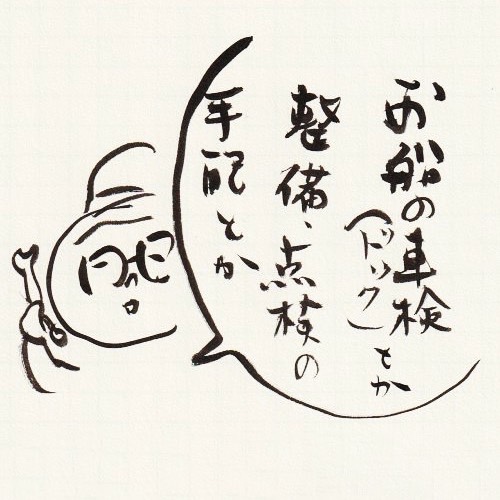 お船の車検
（ドック）とか
整備、点検の
手配とか